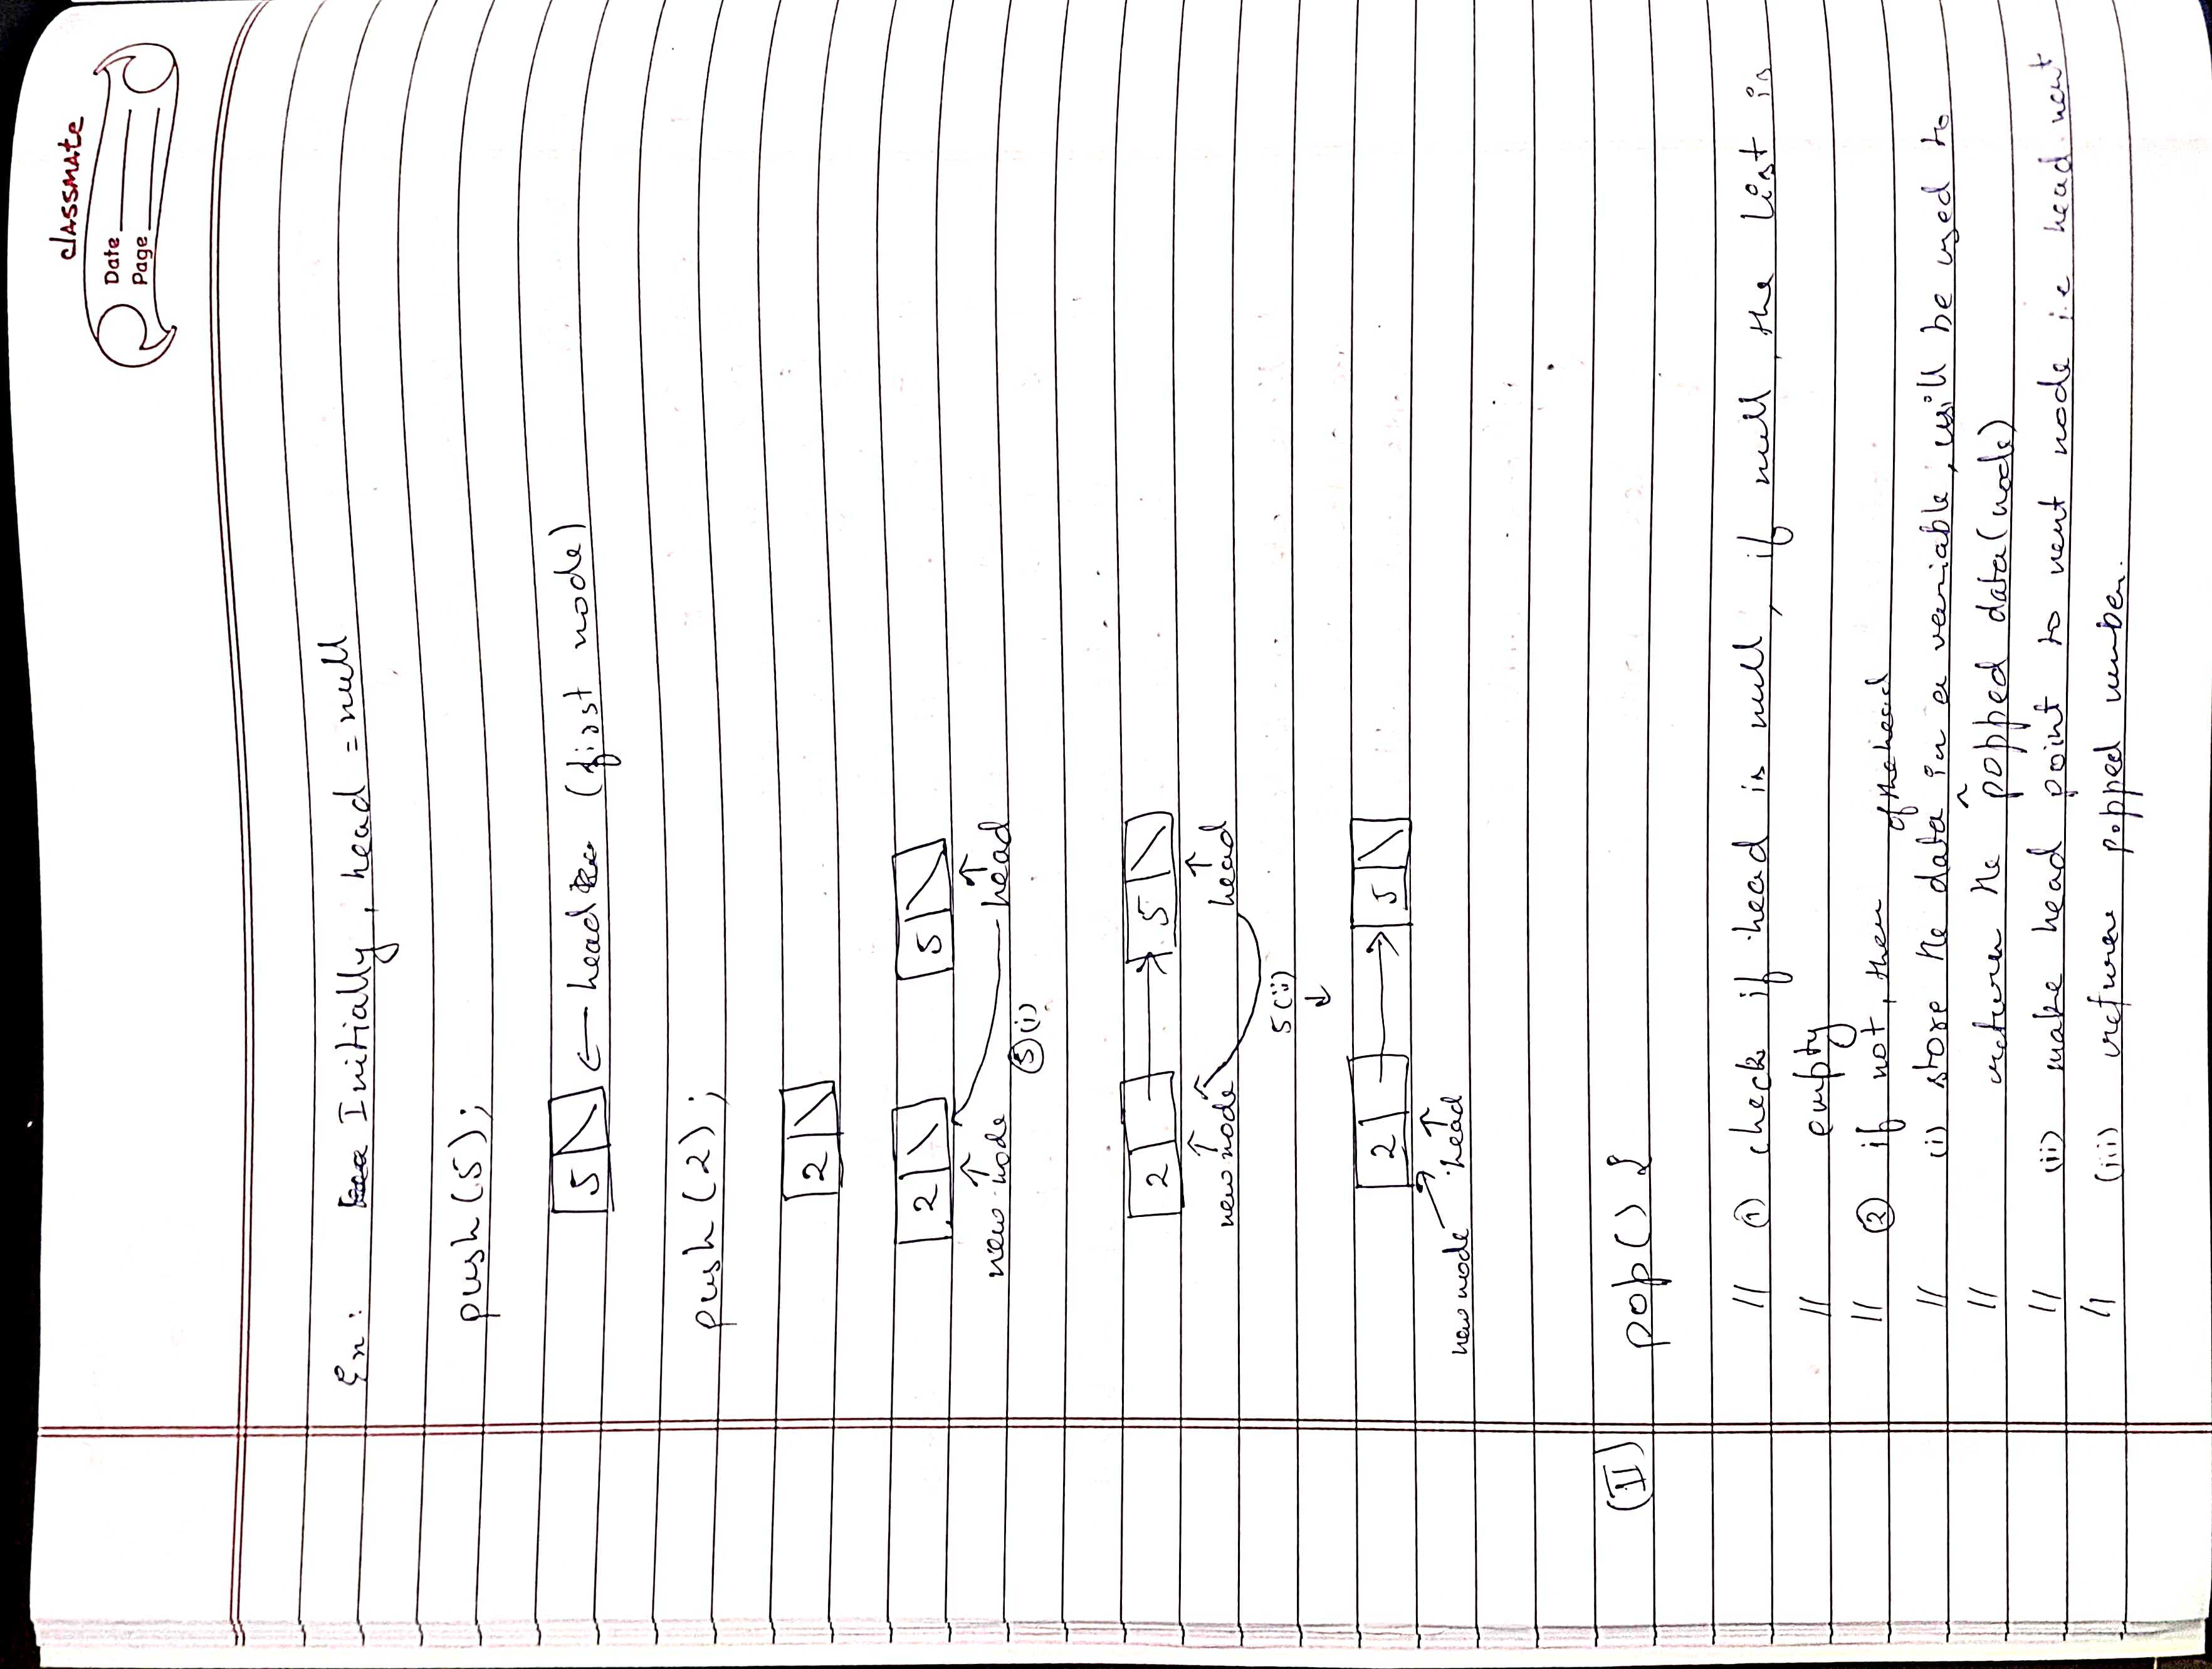 classmate
Date
Page
Ex: Initially, head = null
push (5);
5 ← head (first node)
push (2);
2
2 5
new node head
5 (i)
2 → 5
new node head
5 (ii)
↓
2 → 5
new node head
(II) pop() {
// ① check if head is null, if null, the list is
// empty
// ② if not, then
of the head
// (i) store the data ^ in a variable, will be used to
// return the popped data (node)
// (ii) make head point to next node i.e head.next
// (iii) return popped number.